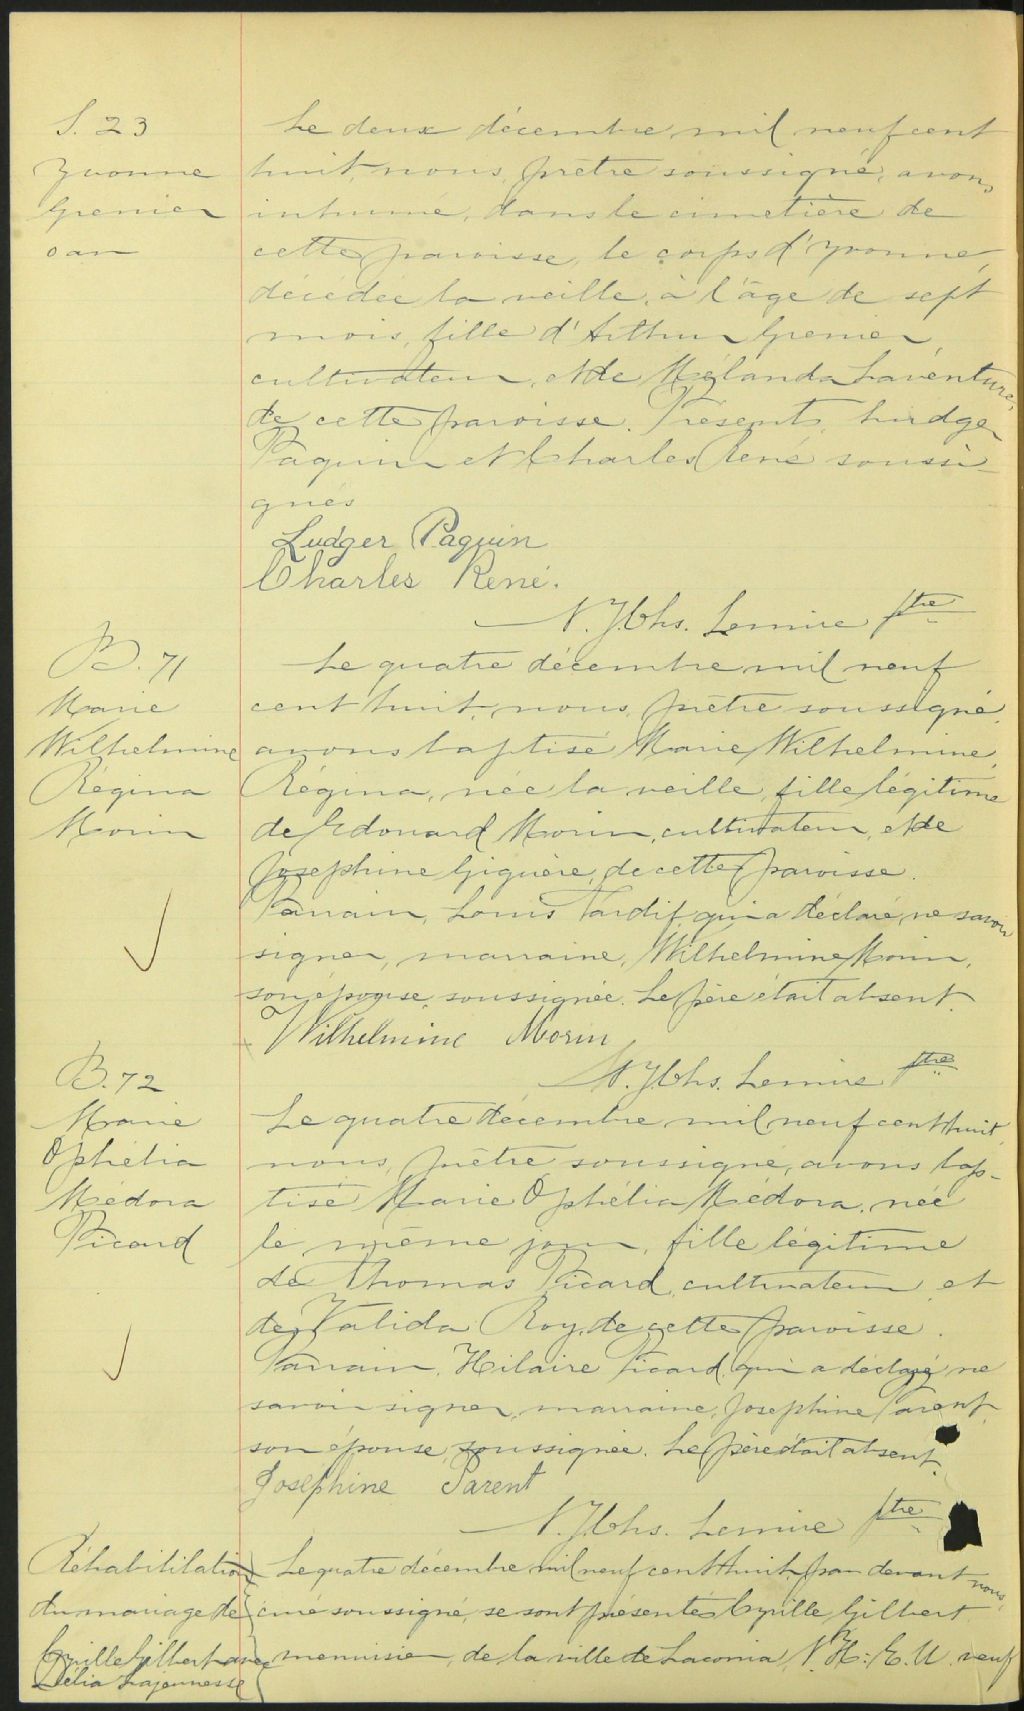 S. 23
Yvonne
Grenier
o an
Le deux décembre mil neuf cent
huit, nous, prêtre soussigné, avons
inhumé, dans le cimetière de
cette paroisse, le corps d'Yvonne,
décédée la veille, à l'âge de sept
mois, fille d'Arthur Grenier,
cultivateur, et de Mélanda Laventure,
de cette paroisse. Présents, Ludger
Paquin et Charles René soussi-
gnés
Ludger Paquin
Charles René.
N. J. Chs. Lemire ptre
B. 71
Marie
Wilhelmine
Régina
Morin
Le quatre décembre mil neuf
cent huit, nous, prêtre soussigné,
avons baptisé Marie Wilhelmine,
Régina, née la veille, fille légitime
de Edouard Morin, cultivateur, et de
Josephine Giguère, de cette paroisse.
Parrain, Louis Tardif, qui a déclaré ne savoir
signer, marraine, Wilhelmine Morin,
son épouse, soussignée. Le père était absent.
Wilhelmine Morin
N. J. Chs. Lemire ptre
B. 72
Marie
Ophélia
Médora
Picard
Le quatre décembre mil neuf cent huit,
nous, prêtre soussigné, avons bap-
tisé Marie Ophélia Médora, née
le même jour, fille légitime
de Thomas Picard, cultivateur, et
de Valida Roy, de cette paroisse.
Parrain, Hilaire Picard, qui a déclaré ne
savoir signer, marraine, Josephine Parent,
son épouse, soussignée. Le père était absent.
Josephine Parent
N. J. Chs. Lemire ptre
Réhabilitation
du mariage de
Cyrille Gilbert avec
Délia Lajeunesse
Le quatre décembre mil neuf cent huit, par devant nous,
curé soussigné, se sont présentés Cyrille Gilbert
menuisier, de la ville de Laconia, N. H. E. U. veuf